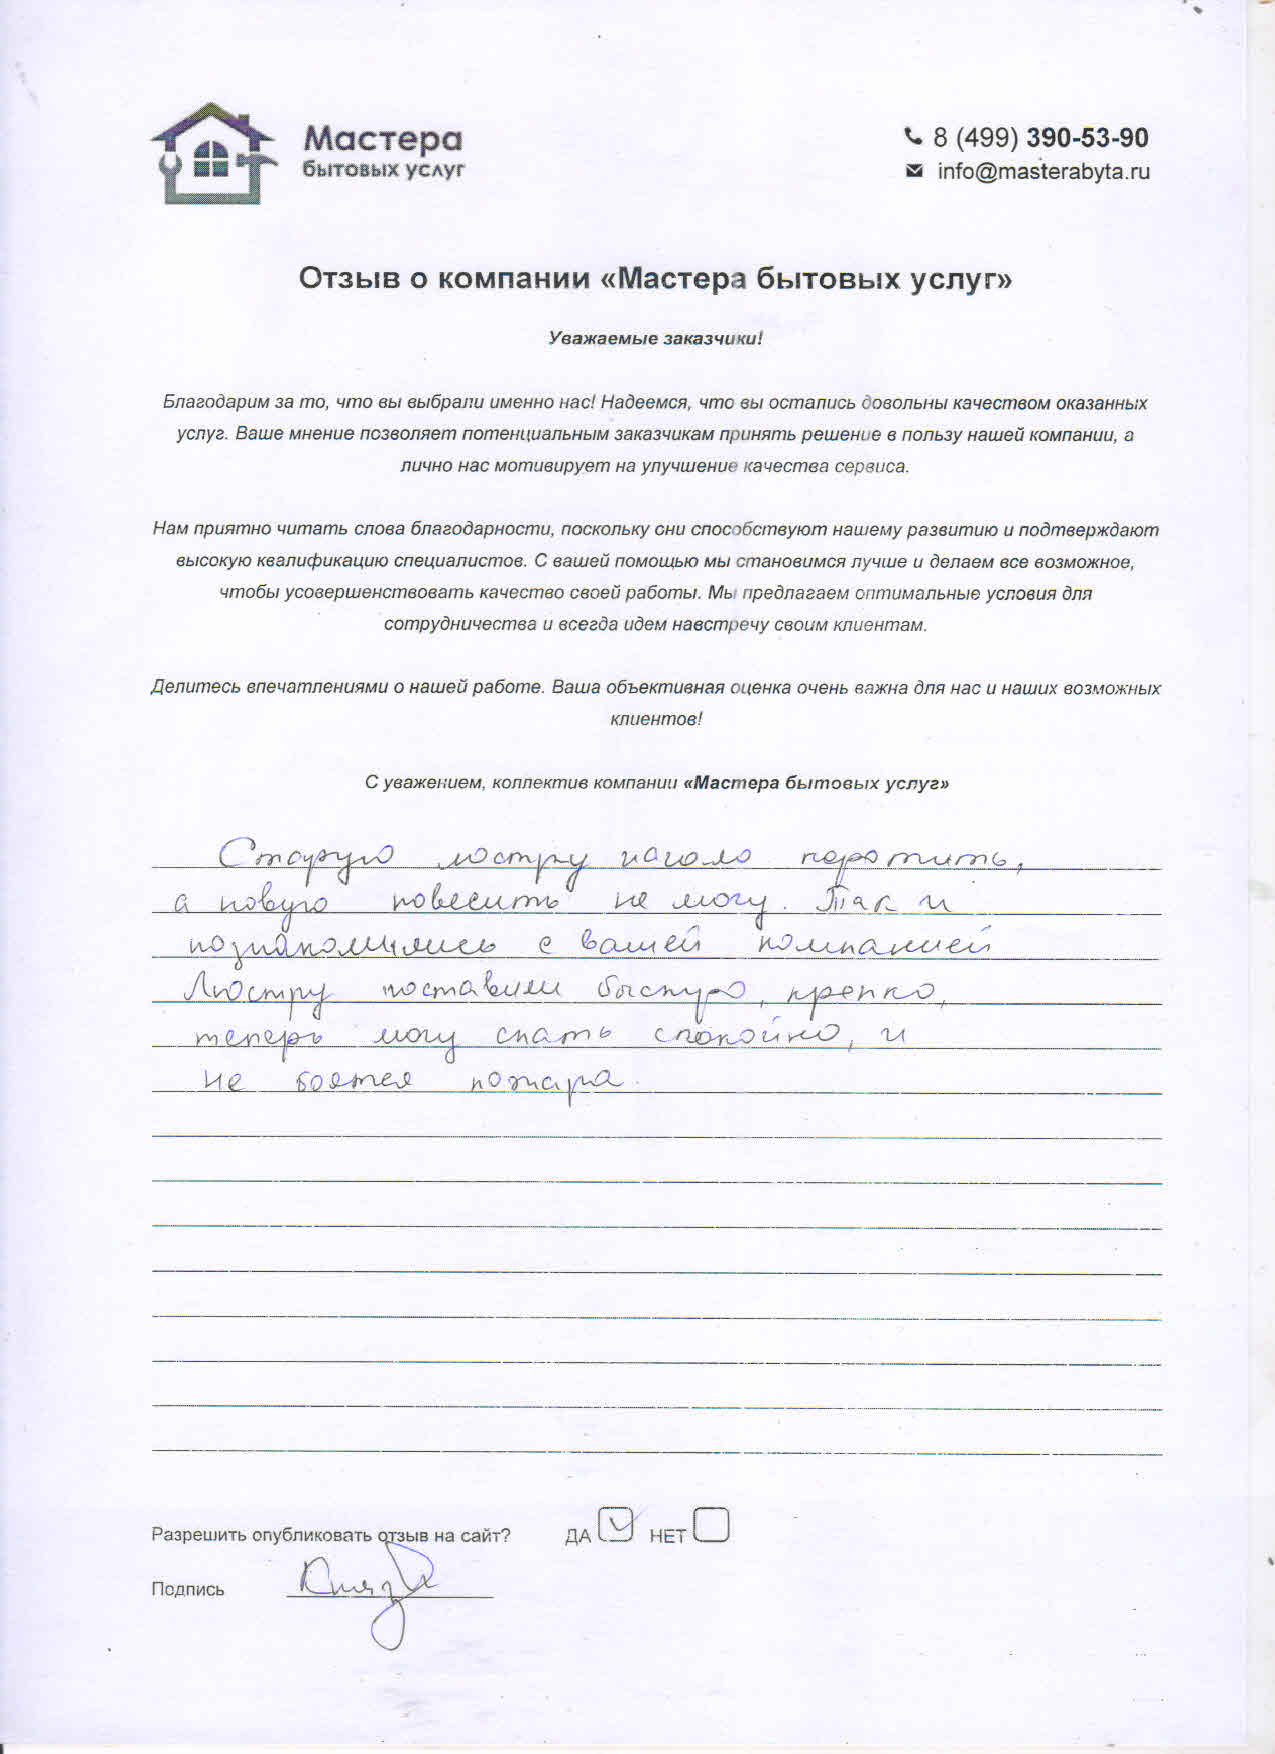 Мастера
бытовых услуг
8 (499) 390-53-90
info@masterabyta.ru
Отзыв о компании «Мастера бытовых услуг»
Уважаемые заказчики!
Благодарим за то, что вы выбрали именно нас! Надеемся, что вы остались довольны качеством оказанных
услуг. Ваше мнение позволяет потенциальным заказчикам принять решение в пользу нашей компании, а
лично нас мотивирует на улучшение качества сервиса.
Нам приятно читать слова благодарности, поскольку они способствуют нашему развитию и подтверждают
высокую квалификацию специалистов. С вашей помощью мы становимся лучше и делаем все возможное,
чтобы усовершенствовать качество своей работы. Мы предлагаем оптимальные условия для
сотрудничества и всегда идем навстречу своим клиентам.
Делитесь впечатлениями о нашей работе. Ваша объективная оценка очень важна для нас и наших возможных
клиентов!
С уважением, коллектив компании «Мастера бытовых услуг»
Старую люстру начало
а новую повесить не могу. Так и
познакомились с вашей компанией
Люстру поставили быстро, крепко,
теперь могу спать спокойно, и
не боятся пожара.
Разрешить опубликовать отзыв на сайт? ДА НЕТ
Подпись